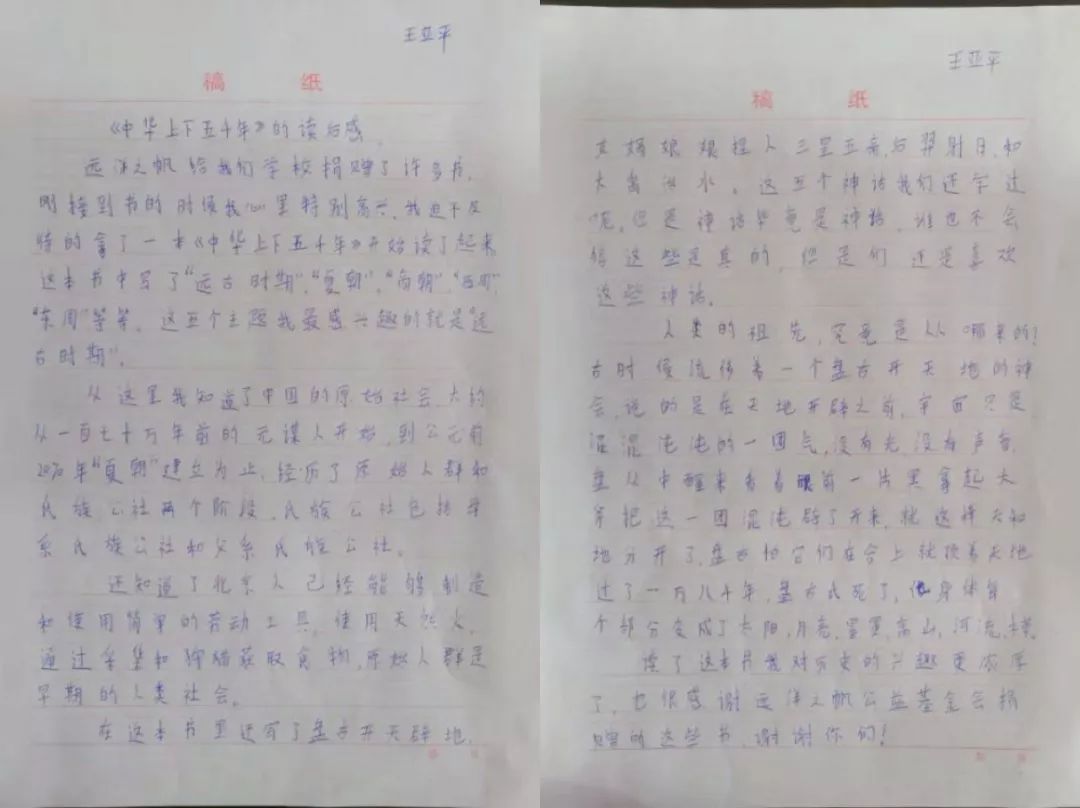 王亚平
稿 纸
《中华上下五千年》的读后感
远洋之帆给我们学校捐赠了许多书,
刚接到书的时候我心里特别高兴,我迫不及
待的拿了一本《中华上下五千年》开始读了起来
这本书中写了“远古时期”,“夏朝”,“商朝”,“西周”,
“东周”等等。这五个主题我最感兴趣的就是“远
古时期”。
从这里我知道了中国的原始社会,大约
从一百七十万年前的元谋人开始,到公元前
2070年“夏朝”建立为止,经历了原始人群和
氏族公社两个阶段,氏族公社包括母
系氏族公社和父系氏族公社。
还知道了北京人已经能够制造
和使用简单的劳动工具,使用天然火,
通过采集和狩猎获取食物,原始人群是
早期的人类社会。
在这本书里还写了盘古开天辟地,
王亚平
稿 纸
女娲娘娘捏人三皇五帝,后羿射日,和
大禹治水。这五个神话我们还学过
呢,但是神话毕竟是神话,谁也不会
信这些是真的,但是们还是喜欢
这些神话。
人类的祖先,究竟是从哪来的?
古时侯流传着一个盘古开天地的神
会,说的是在天地开辟之前,宇宙只是
混混沌沌的一团气,没有光,没有声音,
盘从中醒来看着眼前一片黑拿起大
斧把这一团混沌辟了开来,就这样天和
地分开了,盘古怕它们在合上就顶着天地
过了一万八千年,盘古氏死了,他身体每
个部分变成了太阳,月亮,星星,高山,河流,
读了这本片我对历史的兴趣更浓厚
了,也很感谢远洋之帆公益基金会捐
赠的这些书,谢谢你们!